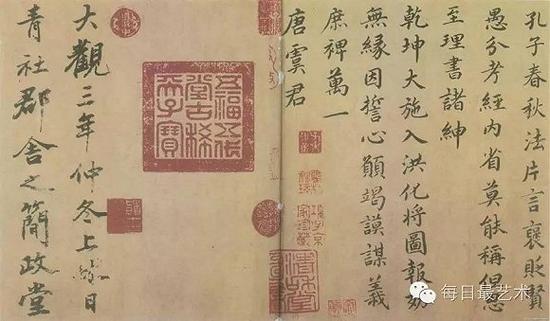 孔子春秋法片言褒貶賢
愚分考經內省莫能稱
至理書諸紳
乾坤大施入洪化將圖報效
無緣因誓心願竭謨謀義
庶裨萬一
唐虞君
五福五代
堂古稀
天子寶
大觀三年仲冬上日
青社郡舍之簡政堂
每日最艺术